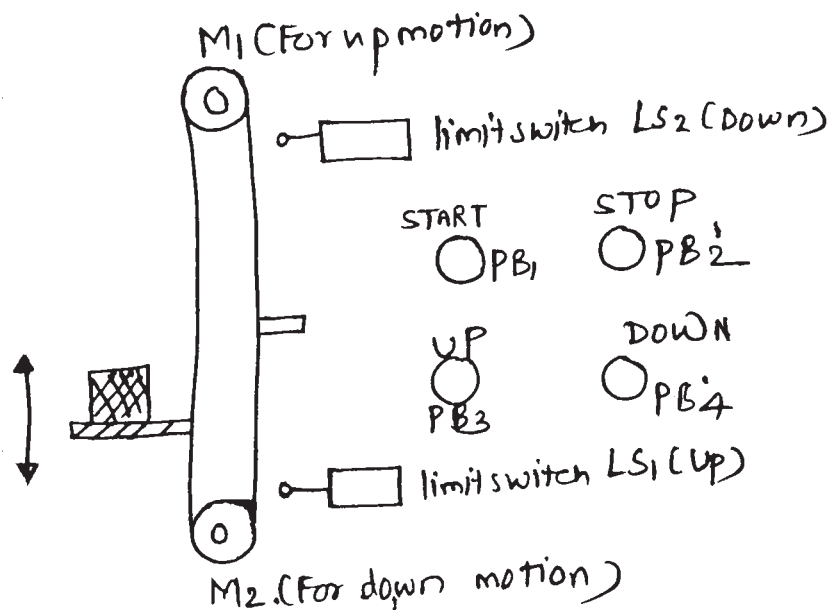 M1 (For up motion)
limit switch LS2 (Down)
START
PB1
STOP
PB2
UP
PB3
DOWN
PB4
limit switch LS1 (Up)
M2. (For down motion)